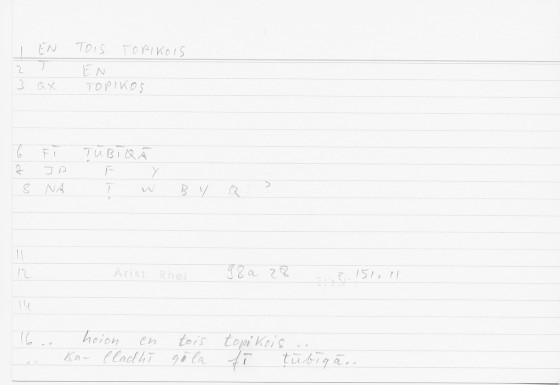 1 EN TOIS TOPIKOIS
2 T EN
3 GX TOPIKOS
6 FĪ ṬŪBĪQĀ
7 JP F Y
8 NA Ṭ W B Y Q ʾ
11
12 Arist Rhet 98a 28 151,11
14
16 .. hoion en tois topikois ..
.. ka-lladhī qāla fī ṭūbīqā..